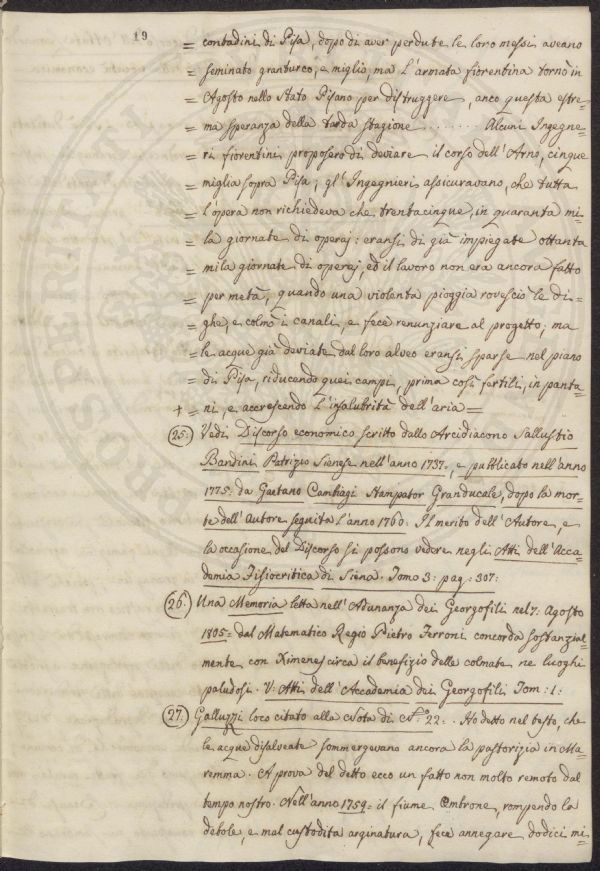 19
= contadini di Pisa, dopo di aver perdute le loro messi aveano
= seminato granturco, e miglio, ma l'armata fiorentina tornò in
= Agosto nello Stato Pisano per distruggere, anco questa estre-
= ma speranza della tarda stagione ........ Alcuni Ingegne-
= ri fiorentini proposero di deviare il corso dell'Arno, cinque
= miglia sopra Pisa; gl'Ingegnieri assicuravano, che tutta
= l'opera non richiedeva che trentacinque, in quaranta mi-
= la giornate di operaj: eransi di già impiegate ottanta
= mila giornate di operaj, ed il lavoro non era ancora fatto
= per metà, quando una violenta pioggia rovesciò le di-
= ghe, e colmò i canali, e fece renunziare al progetto; ma
= le acque già deviate dal loro alveo eransi sparse nel piano
= di Pisa, riducendo quei campi, prima così fertili, in panta-
+ = ni, e accrescendo l'insalubrità dell'aria =
(25:) Vedi Discorso economico scritto dallo Arcidiacono Sallustio
Bandini Patrizio Sienese nell'anno 1737:, e pubblicato nell'anno
1775: da Gaetano Cambiagi Stampator Granducale, dopo la mor-
te dell'Autore seguita l'anno 1760: Il merito dell'Autore, e
la occasione del Discorso si possono vedere negli Atti dell'Acca-
demia Fisiocritica di Siena. Tomo 3: pag: 307:
(26:) Una Memoria letta nell'Adunanza dei Georgofili nel 7. Agosto
1805= dal Matematico Regio Pietro Ferroni concorda sostanzial-
mente con Ximenes circa il benefizio delle colmate ne luoghi
paludosi. V: Atti dell'Accademia dei Georgofili Tom: 1:
(27:) Galluzzi loco citato alla Nota di N.o 22: . Ho detto nel testo, che
le acque disalveate sommergevano ancora la pastorizia in Ma-
remma. A prova del detto ecco un fatto non molto remoto dal
tempo nostro. Nell'anno 1759= il fiume Ombrone, rompendo la
debole, e mal custodita arginatura, fece annegare dodici mi-
PROSPERITATI